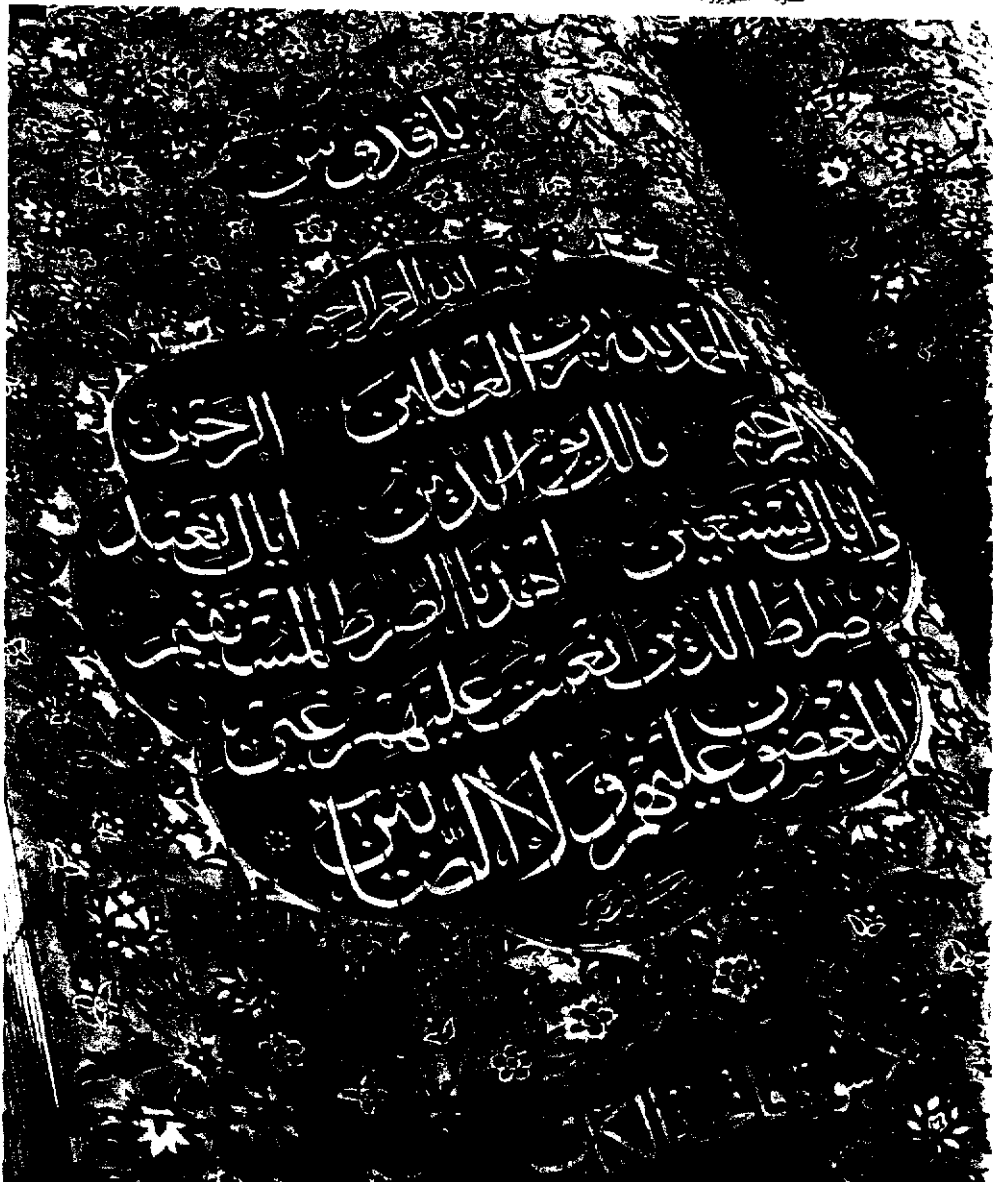 يا قدوس
بسم الله الرحمن الرحيم
الحمد لله رب العالمين الرحمن
الرحيم مالك يوم الدين اياك نعبد
واياك نستعين اهدنا الصرط المستقيم
صراط الذين انعمت عليهم غير
المغضوب عليهم ولا الضالين